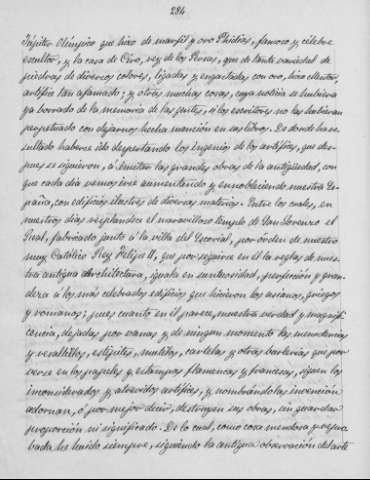 284
Júpiter Olímpico que hizo de marfil y oro Phidias, famoso y célebre
escultor, y la casa de Ciro, rey de los Persas, que de tanta variedad de
piedras de diversos colores, ligadas y engastadas con oro, hizo Menton,
artífice tan afamado; y otras muchas cosas, cuya noticia se hubiera
ya borrado de la memoria de las gentes, si los escritores no las hubieran
perpetuado con dejarnos hecha mención en sus libros. De donde ha re-
sultado haberse ido despertando los ingenios de los artífices, que des-
pues se siguieron, á imitar las grandes obras de la antigüedad, con
que cada dia vemos irse aumentando y ennobleciendo nuestra Es-
paña, con edificios ilustres de diversas materias. Entre los cuales, en
nuestros dias resplandece el maravilloso templo de San Lorenzo el
Real, fabricado junto á la villa del Escorial, por órden de nuestro
muy Católico Rey Felipe II, que por seguirse en él la reglas de nues-
tra antigua architectura, iguala en suntuosidad, perfeccion y gran-
deza á los más celebrados edificios que hicieron los asianos, griegos
y romanos; pues cuanto en él parece, muestra verdad y magnifi-
cencia, dejadas por vanas y de ningun momento las menudencias
y resaltillos, estípites, mutilos, cartelas y otras burlerías que por
verse en los papeles y estampas flamencas y francesas, siguen los
inconsiderados y atrevidos artífices, y nombrándolas invencion
adornan, ó por mejor decir, destruyen sus obras, sin guardar
proporcion ni significado. De lo cual, como cosa mendosa y repro-
bada has huido siempre, siguiendo la antigua observacion del arte